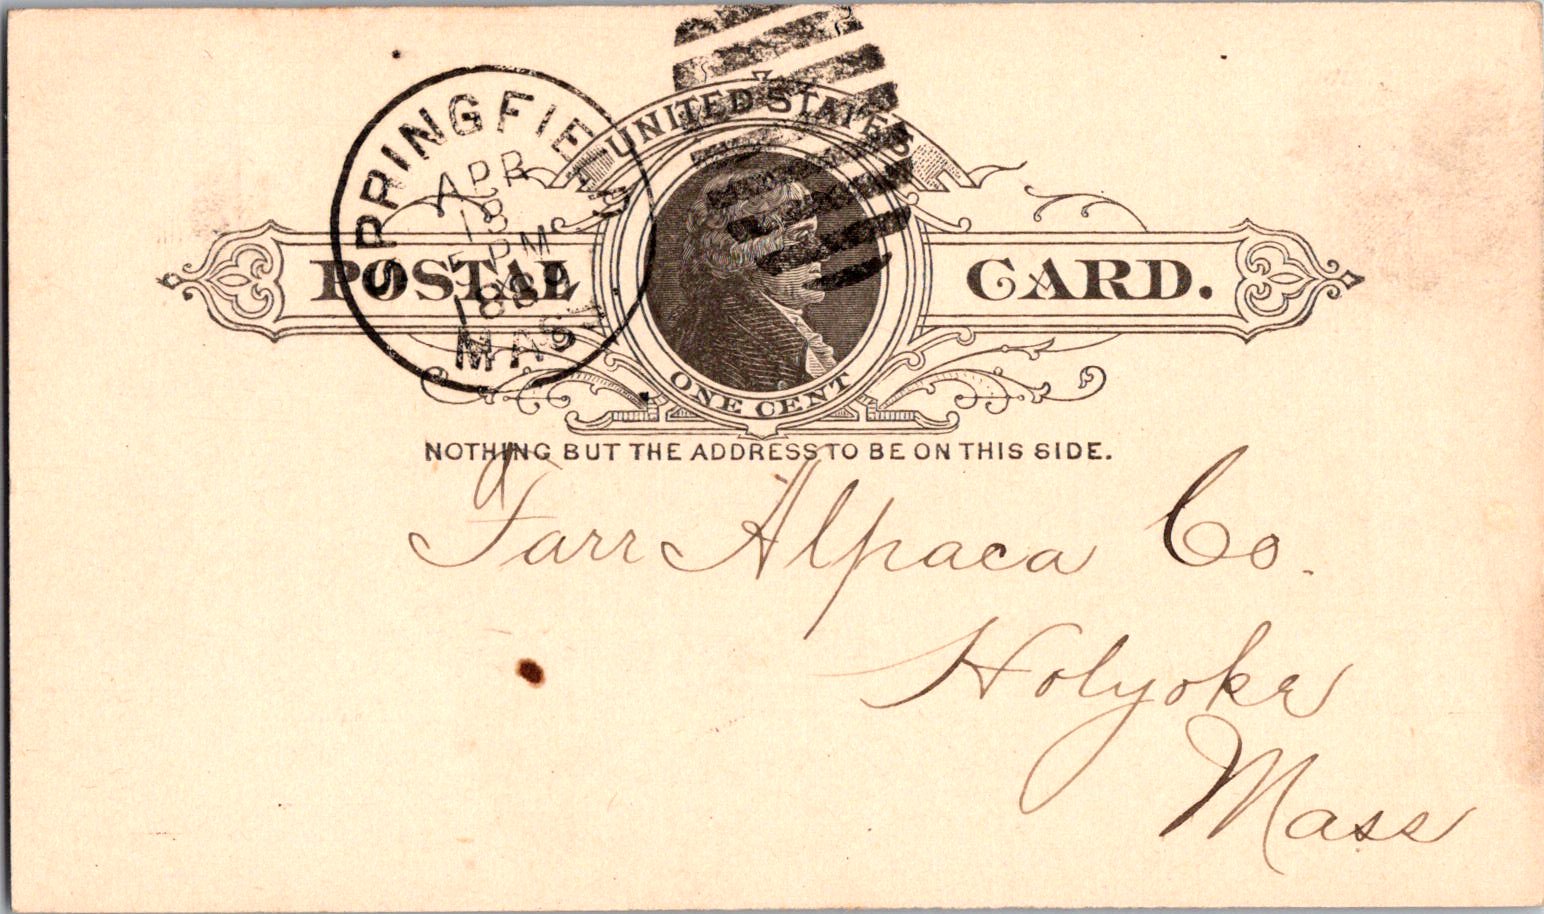 UNITED STATES
POSTAL CARD.
ONE CENT
NOTHING BUT THE ADDRESS TO BE ON THIS SIDE.
SPRINGFIELD
APR
18
5 PM
1889
MASS.
Farr Alpaca Co.
Holyoke
Mass